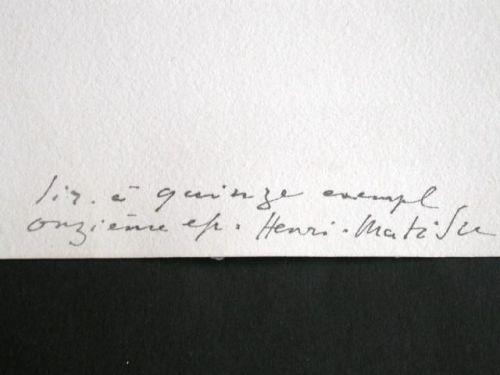 tir. à quinze exempl
onzième ep. Henri-Matisse